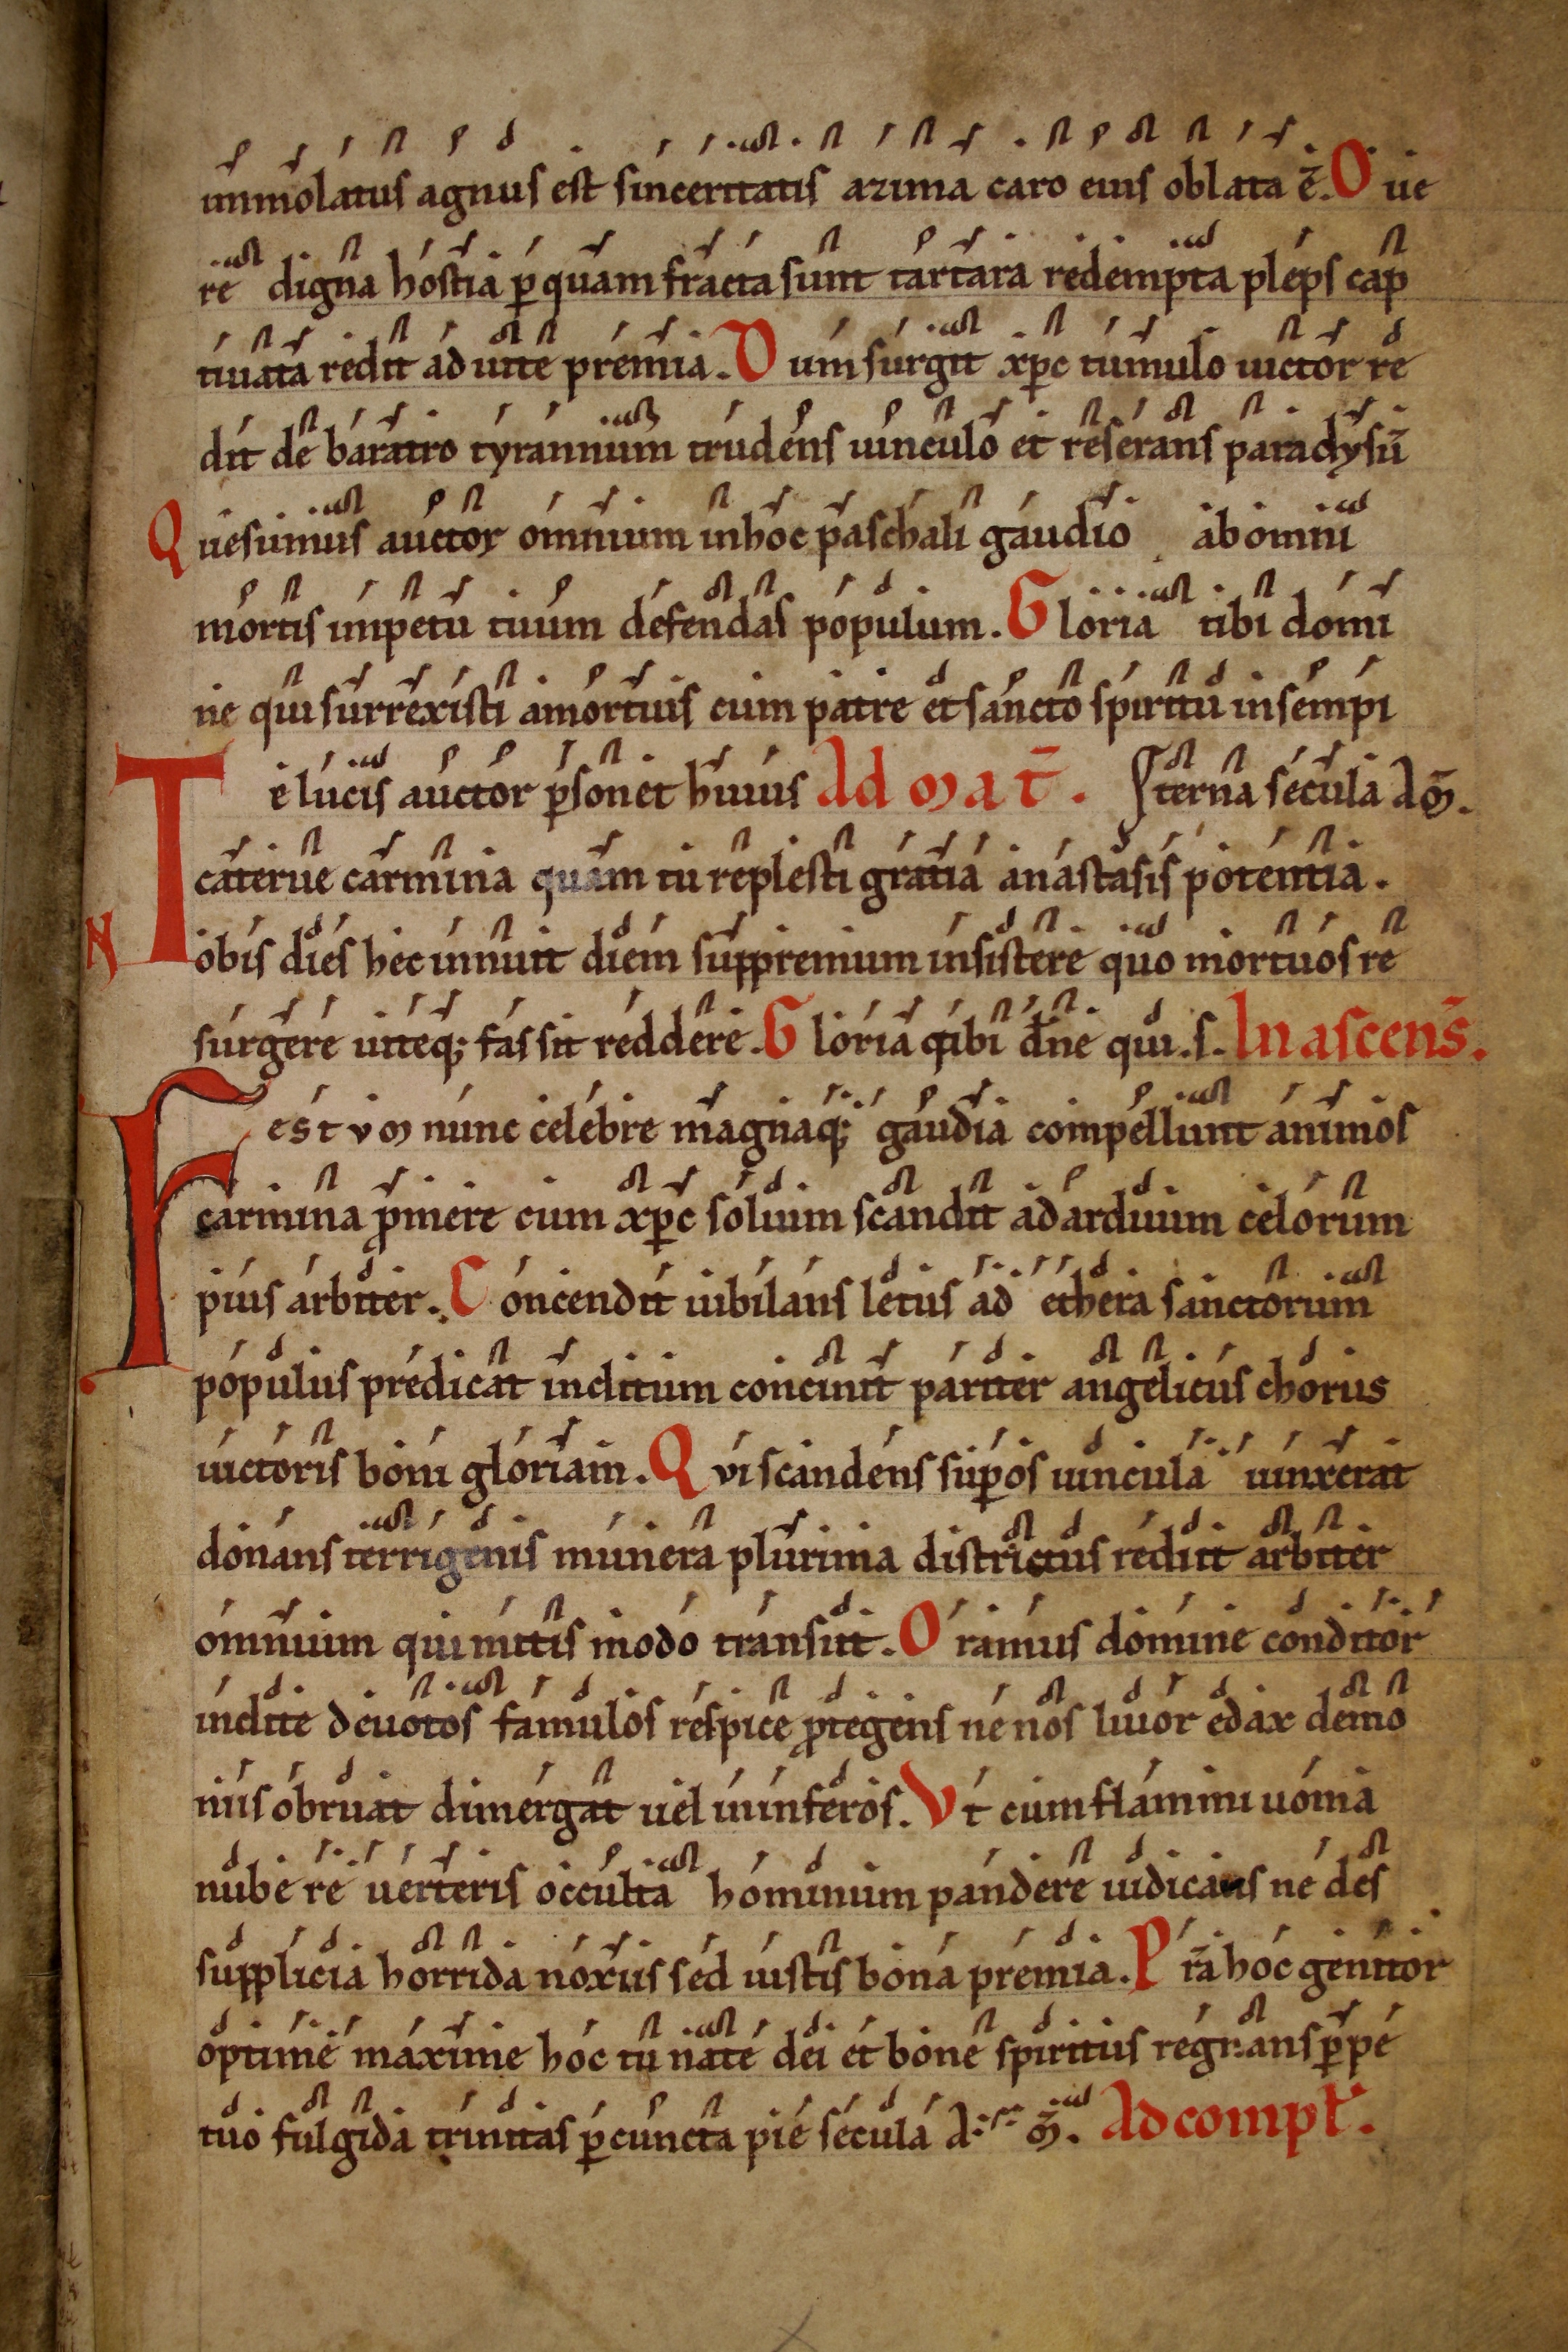 immolatus agnus est sinceritatis azima caro eius oblata ē. O ue
re digna hostia ꝑquam fracta sunt tartara redempta pleps cap
tiuata redit ad uite premia. Dum surgit xp̄c tumulo uictor re
dit de baratro tyrannum trudens uinculo et reserans paradysū
Quesumus auctor omnium inhoc paschali gaudio abomni
mortis impetu tuum defendas populum. Gloria tibi domi
ne qui surrexisti amortuis cum patre et sancto spiritu insempi
Te lucis auctor ꝑsonet huius Ad mat̄. terna secula Am̄.
caterue carmina quam tu replesti gratia anastasis potentia.
Nobis dies hec innuit diem suppremum insistere quo mortuos re
surgere uiteq; fas sit reddere. Gloria tibi dn̄e qui .s. In ascens̄.
Festum nunc celebre magnaq; gaudia compellunt animos
carmina ꝓmere cum xp̄c solium scandit ad arduum celorum
pius arbiter. Concendit iubilans letus ad ethera sanctorum
populus predicat inclitum concinit pariter angelicus chorus
uictoris boni gloriam. Qui scandens suꝑos uincula uinxerat
donans terrigenis munera plurima districtus redit arbiter
omnium qui mitis modo transiit. Oramus domine conditor
inclite deuotos famulos respice ꝓtegens ne nos liuor edax demo
nus obruat dimergat uel ininferos. Vt cum flammiuoma
nube reuerteris occulta hominum pandere iudicans ne des
supplicia horrida noxiis sed iustis bona premia. Pr̄a hoc genitor
optime maxime hoc tu nate dei et bone spiritus regnans ꝑpe
tuo fulgida trinitas ꝑ cuncta pie secula A. m̄. Ad compl̄.